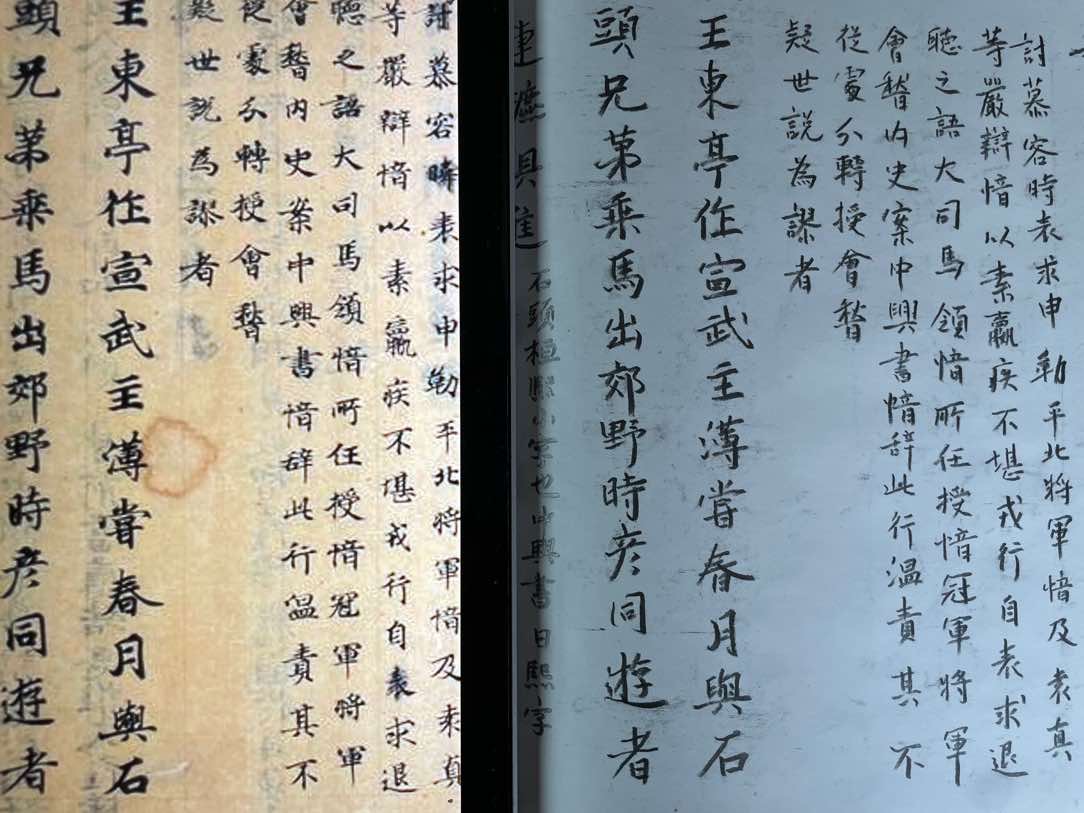 討慕容暐表求申勸平北將軍愔及袁真
等嚴辯愔以素羸疾不堪戎行自表求退
聽之詔大司馬領愔所任授愔冠軍將軍
會稽內史案中興書愔辞此行溫責其不
從處分轉授會稽
疑世說為謬者
王東亭作宣武主簿嘗春月與石
頭兄弟乘馬出郊野時彥同遊者
討慕容時表求申勸平北將軍愔及袁真
等嚴辯愔以素羸疾不堪戎行自表求退
聽之語大司馬領愔所任授愔冠軍將軍
會稽內史案中興書愔辞此行溫責其不
從處分轉授會稽
疑世說為謬者
王東亭作宣武主簿嘗春月與石
頭兄弟乘馬出郊野時彥同遊者
連鑣俱進石頭桓熙小字也中興書曰熙字